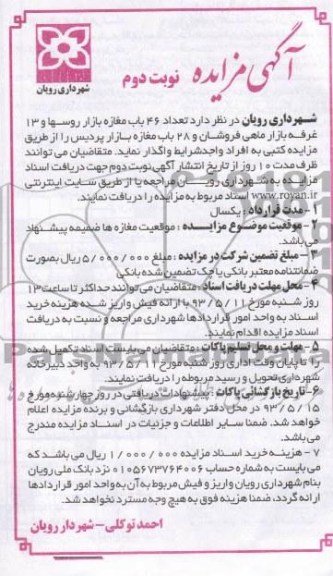 آگهی مزایده نوبت دوم
شهرداری رویان
شهرداری رویان در نظر دارد تعداد ۴۶ باب مغازه بازار روسها و ۱۳
غرفه بازار ماهی فروشان و ۲۸ باب مغازه بازار پردیس را از طریق
مزایده کتبی به افراد واجدشرایط واگذار نماید. متقاضیان می توانند
ظرف مدت ۱۰ روز از تاریخ انتشار آگهی نوبت دوم جهت دریافت اسناد
مزایده به شهرداری رویان مراجعه یا از طریق سایت اینترنتی
www.royan.ir اسناد مربوط به مزایده را دریافت نمایند.
۱- مدت قرارداد : یکسال
۲- موقعیت موضوع مزایده : موقعیت مغازه ها ضمیمه پیشنهاد
می باشد.
۳- مبلغ تضمین شرکت در مزایده : مبلغ ۵/۰۰۰/۰۰۰ ریال بصورت
ضمانتنامه معتبر بانکی یا چک تضمین شده بانکی
۴- محل مهلت دریافت اسناد : متقاضیان می توانند حداکثر تا ساعت ۱۳
روز شنبه مورخ ۹۳/۵/۱۱ با ارائه فیش واریز شده هزینه خرید
اسناد به واحد امور قراردادها شهرداری مراجعه و نسبت به دریافت
اسناد مزایده اقدام نمایند.
۵- مهلت و محل تسلیم پاکات : متقاضیان می بایست اسناد تکمیل شده
را تا پایان وقت اداری روز شنبه مورخ ۹۳/۵/۱۱ به واحد دبیرخانه
شهرداری تحویل و رسید مربوطه را دریافت نمایند.
۶- تاریخ بازگشائی پاکات : پیشنهادات دریافتی در روز چهارشنبه مورخ
۹۳/۵/۱۵ در محل دفتر شهرداری بازگشائی و برنده مزایده اعلام
خواهد شد. ضمنا سایر اطلاعات و جزئیات در اسناد مزایده مندرج
می باشد.
۷- هزینه خرید اسناد مزایده ۱/۰۰۰/۰۰۰ ریال می باشد که
می بایست به شماره حساب ۰۱۰۵۶۷۳۷۶۴۰۰۶ نزد بانک ملی رویان
بنام شهرداری رویان واریز و فیش مربوط به آن به واحد امور قراردادها
ارائه گردد، ضمنا هزینه فوق به هیچ وجه مسترد نخواهد شد.
احمد توکلی - شهردار رویان